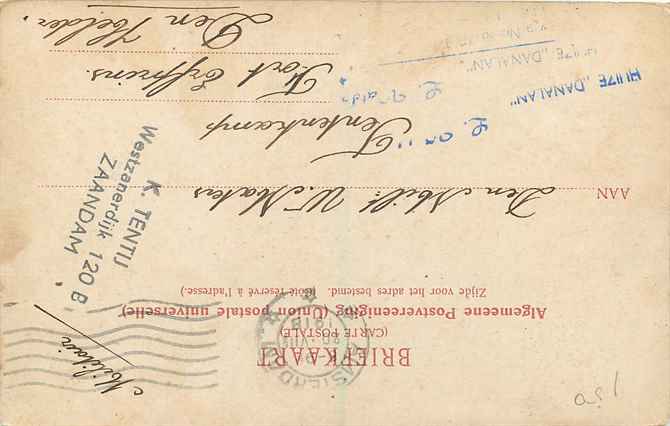 BRIEFKAART
(CARTE POSTALE)
Algemeene Postvereeniging (Union postale universelle)
Zijde voor het adres bestemd. (Côté réservé à l'adresse.)
Militair
AMSTERDAM
1918
AAN
Den Mil: W. Maters
Tentenkamp
Fort Erfprins.
Den Helder.
K. TENTIJ
Westzanerdijk 120 B
ZAANDAM
HUIZE „DANALAN”
HUIZE „DANALAN”
150